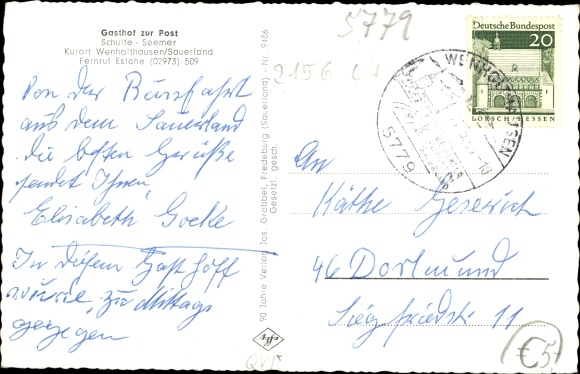 Gasthof zur Post
Schulte - Seemer
Kurort Wenholthausen/Sauerland
Fernruf Eslohe (02973) 509
Von der Busfahrt
aus dem Sauerland
die besten Grüße
sendet Ihnen
Elisabeth Goeke
In diesem Gasthoff
wurde zu Mittags
gegegen
90 Jahre Verlag Jos. Grobbel, Fredeburg (Sauerland), Nr. 9486
Gesetzl. gesch.
Agfa
5779
2156
Deutsche Bundespost
20
LORSCH/HESSEN
WENHOLTHAUSEN
5779
An
Käthe
46 Dortmund
Siegfriedstr. 11
€5